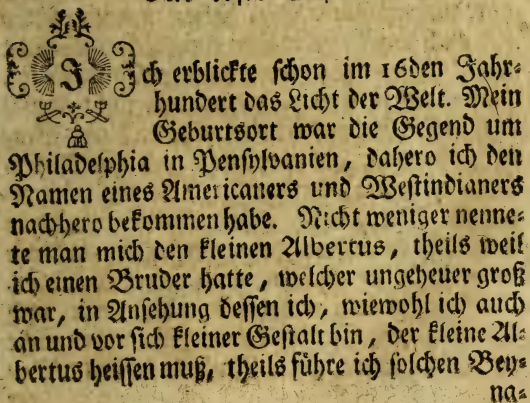 Ich erblickte schon im 16den Jahr-
hundert das Licht der Welt. Mein
Geburtsort war die Gegend um
Philadelphia in Pensylvanien, dahero ich den
Namen eines Americaners und Westindianers
nachhero bekommen habe. Nicht weniger nenne-
te man mich den kleinen Albertus, theils weil
ich einen Bruder hatte, welcher ungeheuer groß
war, in Ansehung dessen ich, wiewohl ich auch
an und vor sich kleiner Gestalt bin, der kleine Al-
bertus heissen muß, theils führe ich solchen Bey-
na-